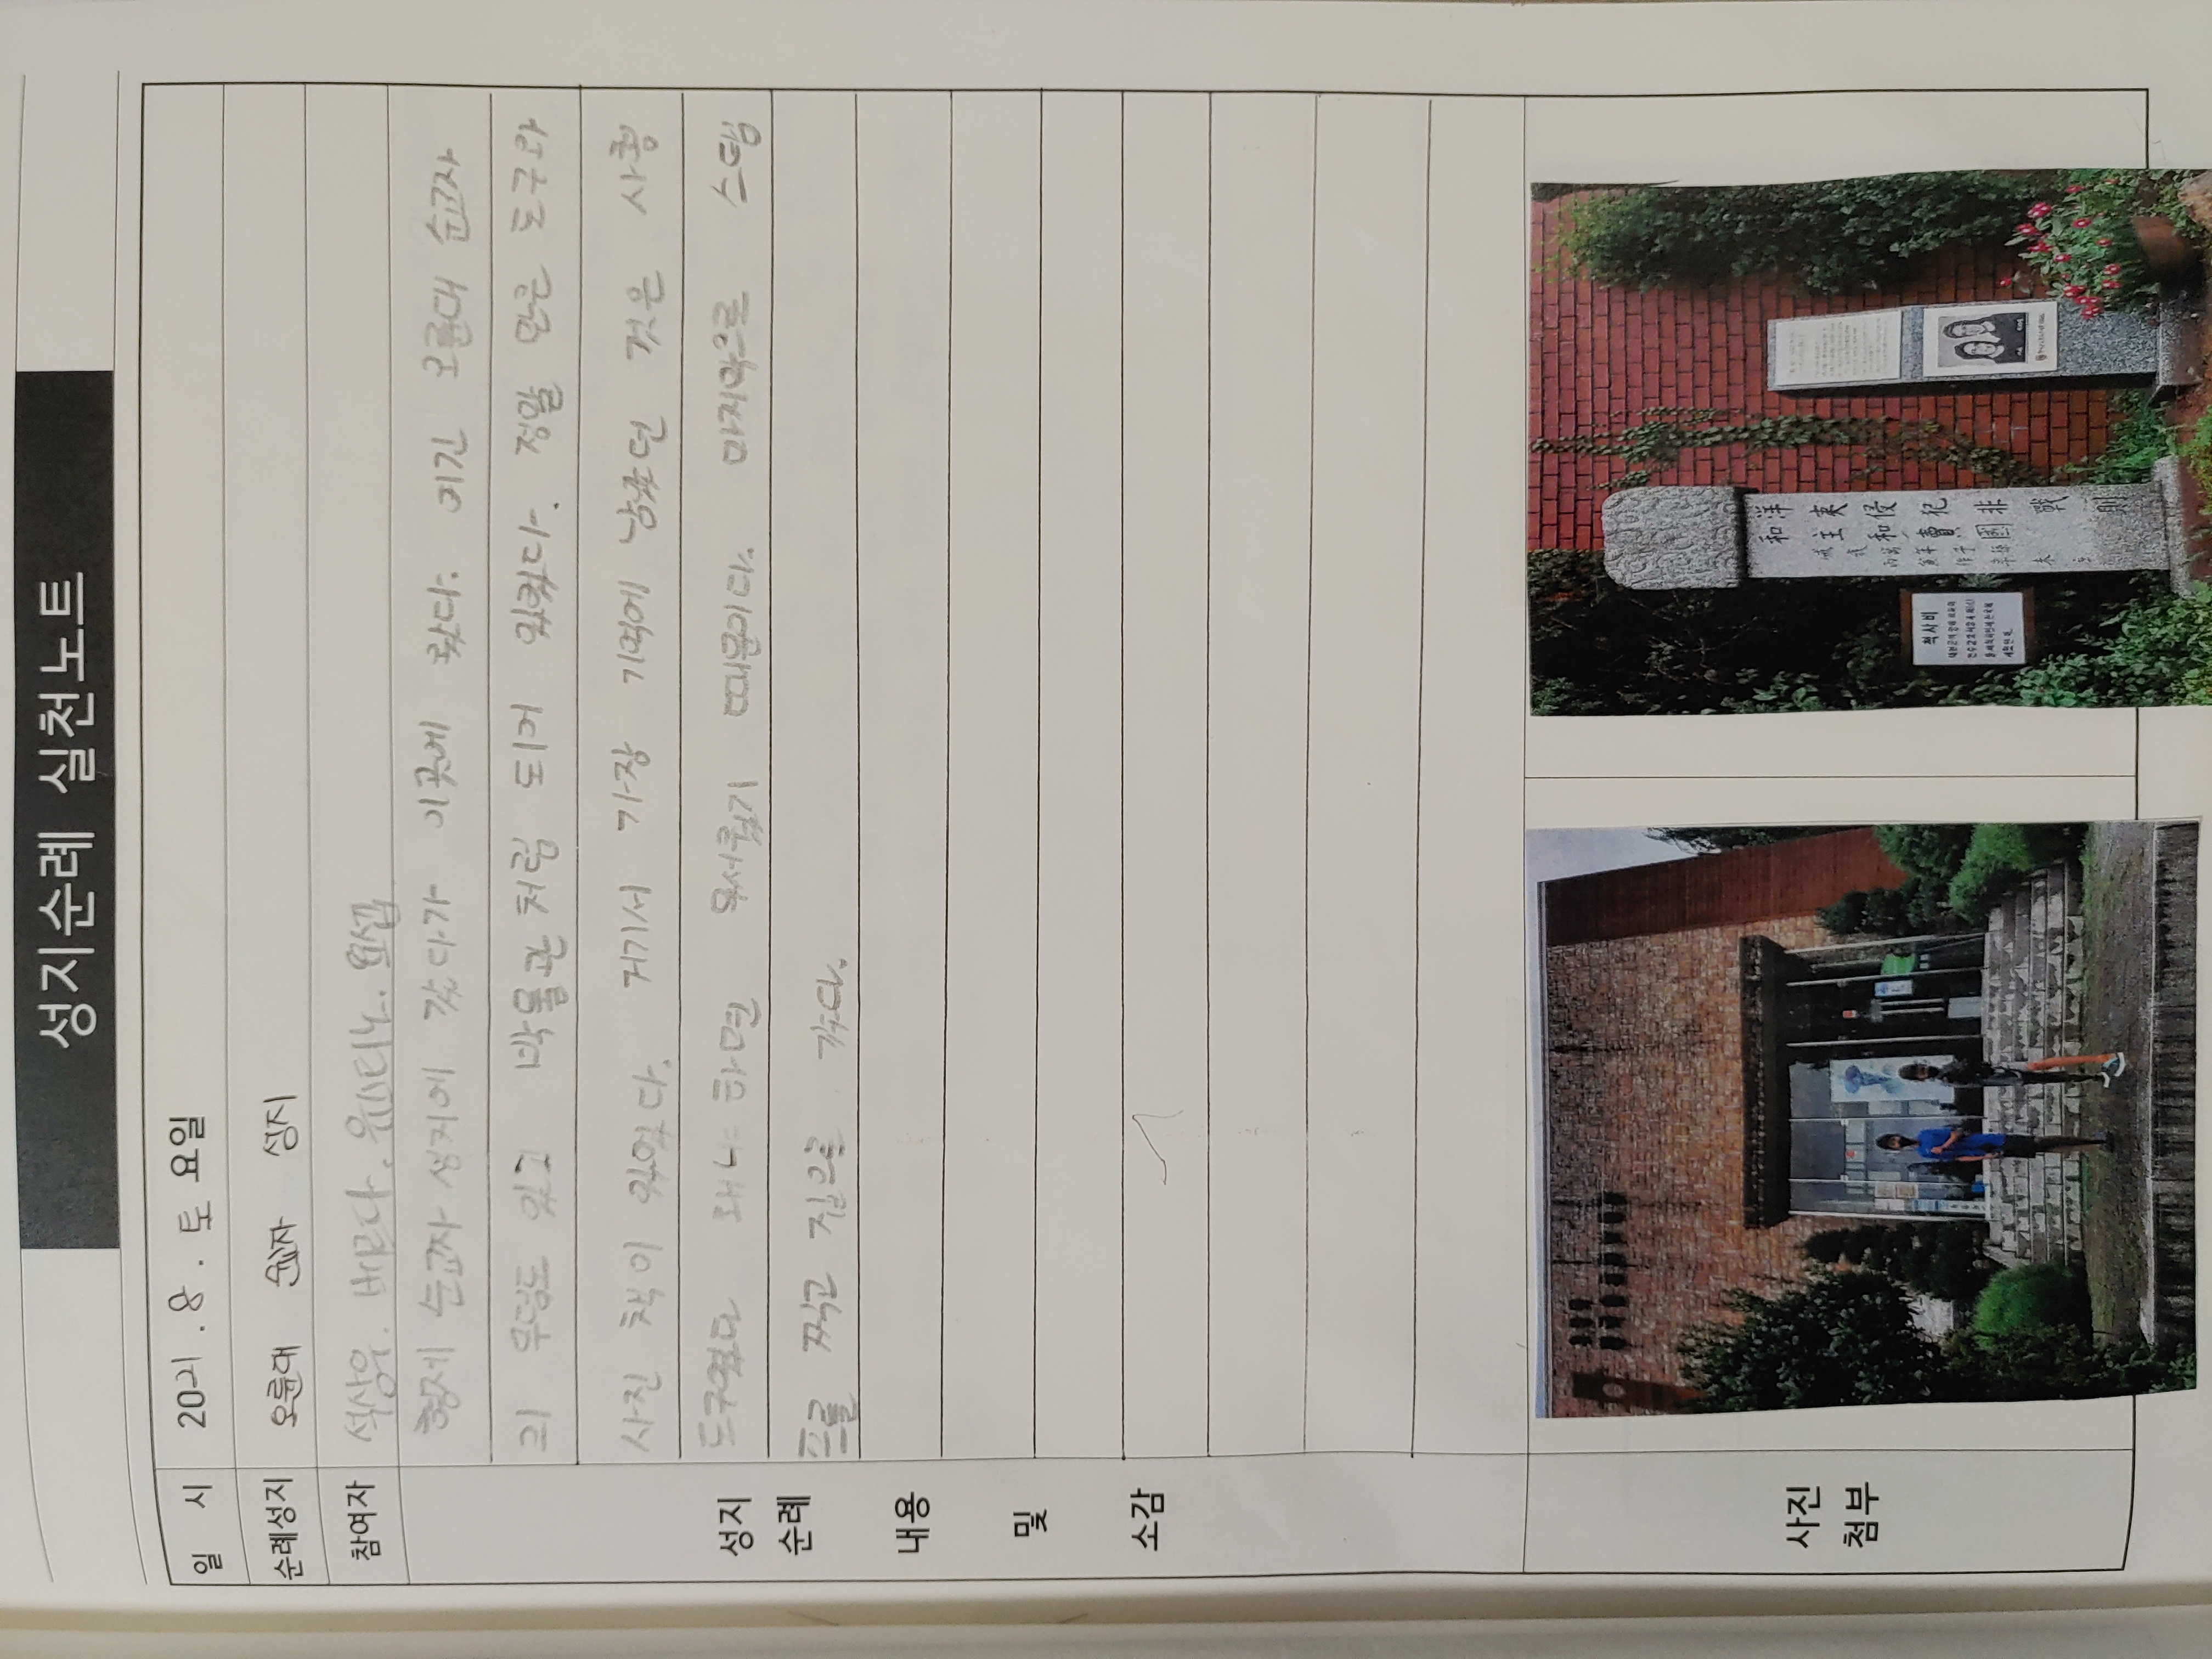 성지순례 실천노트
일 시 2021 . 8 . 토 요일
순례성지 오륜대 순교자 성지
참여자 석상윤. 베르다. 유스티노. 요셉
형제 순교자 성지에 갔다가 이곳에 왔다. 이긴 오륜대 순교자
의 무덤도 있고 박물관처럼 되어 있었다. 정말 많은 도구와
사진 책이 있었다. 거기서 가장 기억에 남았던 것은 사용
도구였다 왜냐하면 무서웠기 때문이다. 마지막으로 스템
프를 찍고 집으로 갔다.
성지
순례
내용
및
소감
사진
첨부
척사비
洋夷侵犯非戰則
和主和賣國